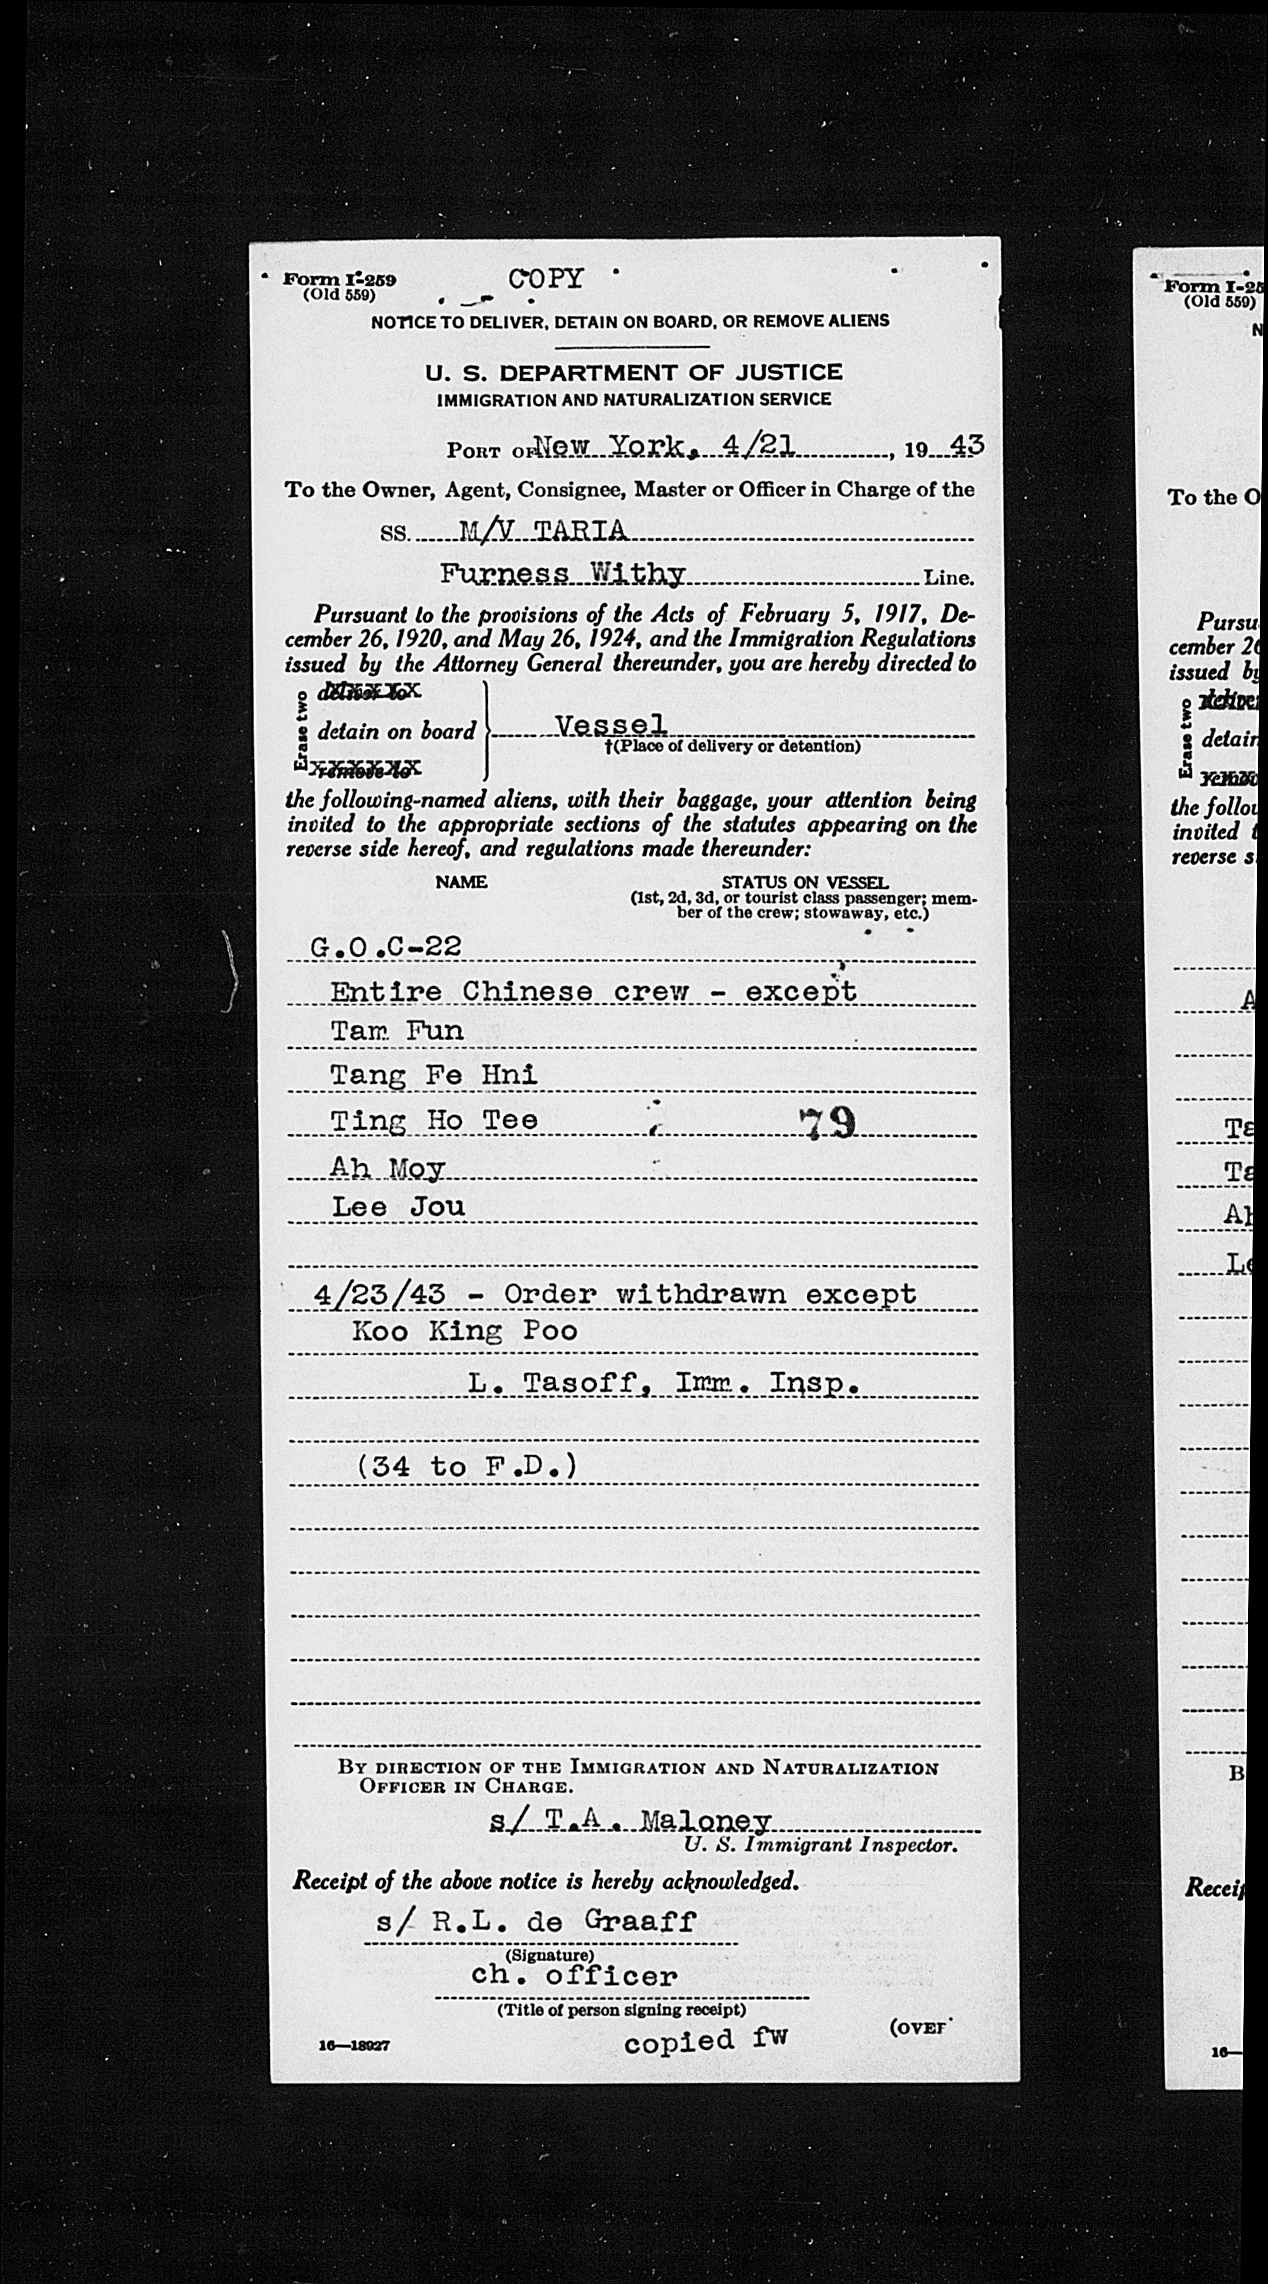 Form I-259
(Old 559)
COPY
NOTICE TO DELIVER, DETAIN ON BOARD, OR REMOVE ALIENS
U. S. DEPARTMENT OF JUSTICE
IMMIGRATION AND NATURALIZATION SERVICE
PORT OF New York, 4/21, 19 43
To the Owner, Agent, Consignee, Master or Officer in Charge of the
SS. M/V TARIA
Furness Withy Line.
Pursuant to the provisions of the Acts of February 5, 1917, De-
cember 26, 1920, and May 26, 1924, and the Immigration Regulations
issued by the Attorney General thereunder, you are hereby directed to
Erase two
deliver to
detain on board } Vessel
†(Place of delivery or detention)
remove to
the following-named aliens, with their baggage, your attention being
invited to the appropriate sections of the statutes appearing on the
reverse side hereof, and regulations made thereunder:
NAME STATUS ON VESSEL
(1st, 2d, 3d, or tourist class passenger; mem-
ber of the crew; stowaway, etc.)
G.O.C-22
Entire Chinese crew - except
Tam Fun
Tang Fe Hni
Ting Ho Tee 79
Ah Moy
Lee Jou
4/23/43 - Order withdrawn except
Koo King Poo
L. Tasoff, Imm. Insp.
(34 to F.D.)
BY DIRECTION OF THE IMMIGRATION AND NATURALIZATION
OFFICER IN CHARGE.
s/ T.A. Maloney
U. S. Immigrant Inspector.
Receipt of the above notice is hereby acknowledged.
s/ R.L. de Graaff
(Signature)
ch. officer
(Title of person signing receipt)
16—18927
copied fw
(OVER
Form I-25
(Old 559)
N
To the O
Pursu
cember 26
issued by
Erase two
deliver
detain
remove
the follow
invited t
reverse s
A
Ta
Ta
Ah
Le
B
Receip
16—